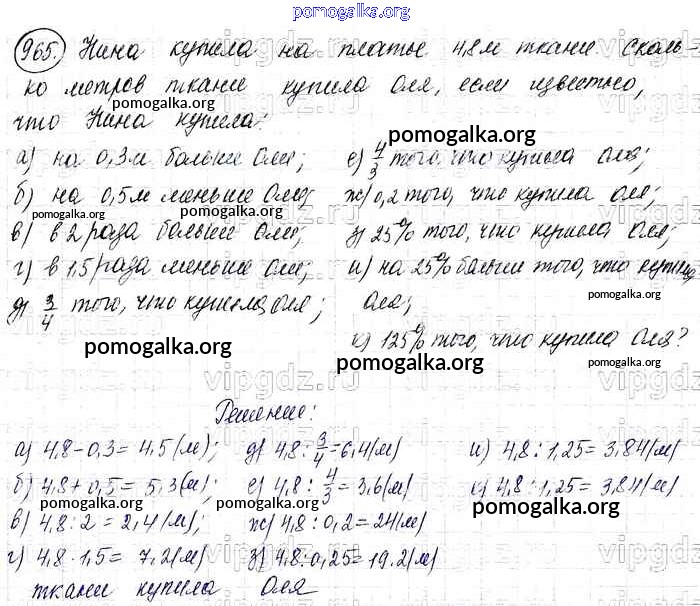 pomogalka.org
965. Нина купила на платье 4,8 м ткани. Сколь-
ко метров ткани купила Оля, если известно,
pomogalka.org
что Нина купила:
pomogalka.org
а) на 0,3 м больше Оли;
б) на 0,5 м меньше Оли;
pomogalka.org
pomogalka.org
в) в 2 раза больше Оли;
г) в 1,5 раза меньше Оли;
д) 3/4 того, что купила Оля;
pomogalka.org
е) 4/3 того, что купила Оля;
ж) 0,2 того, что купила Оля;
pomogalka.org
з) 25% того, что купила Оля;
и) на 25% больше того, что купила
pomogalka.org
Оля;
к) 125% того, что купила Оля?
pomogalka.org
vipgdz.ru
Решение:
а) 4,8-0,3= 4,5 (м);
б) 4,8+0,5= 5,3 (м);
pomogalka.org
в) 4,8:2=2,4 (м);
г) 4,8·1,5= 7,2 (м)
д) 4,8:3/4=6,4 (м)
е) 4,8:4/3=3,6 (м)
pomogalka.org
ж) 4,8:0,2=24 (м)
з) 4,8:0,25=19,2 (м)
и) 4,8:1,25=3,84 (м)
к) 4,8:1,25=3,84 (м)
pomogalka.org
ткани купила Оля